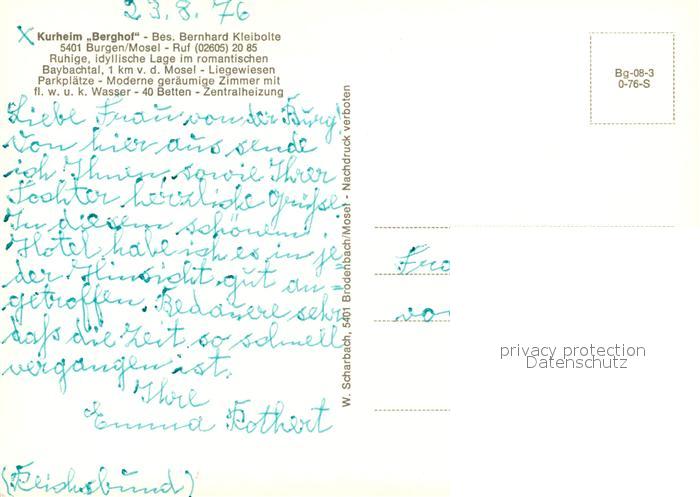 23.8.76
X Kurheim „Berghof" - Bes. Bernhard Kleibolte
5401 Burgen/Mosel - Ruf (02605) 20 85
Ruhige, idyllische Lage im romantischen
Baybachtal, 1 km v. d. Mosel - Liegewiesen
Parkplätze - Moderne geräumige Zimmer mit
fl. w. u. k. Wasser - 40 Betten - Zentralheizung
Liebe Frau von der Burg!
Von hier aus sende
ich Ihnen sowie Ihrer
Tochter herzliche Grüße.
In diesem schönem
Hotel habe ich es in je=
der Hinsicht gut an=
getroffen. Bedauere sehr
daß die Zeit so schnell
vergangen ist.
Ihre
Emma Rothert
(Reichsbund)
W. Scharbach, 5401 Brodenbach/Mosel - Nachdruck verboten
Bg-08-3
0-76-S
Fra
von
privacy protection
Datenschutz